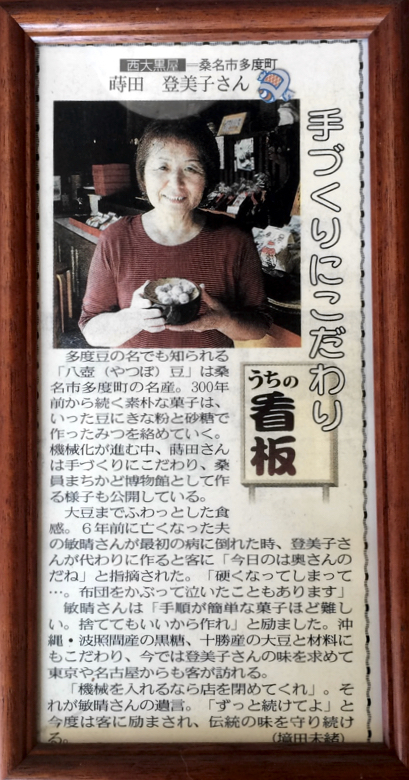 西大黒屋=桑名市多度町
蒔田 登美子さん
手づくりにこだわり
うちの
看板
多度豆の名でも知られる
「八壺(やつぼ)豆」は桑
名市多度町の名産。300年
前から続く素朴な菓子は、
いった豆にきな粉と砂糖で
作ったみつを絡めていく。
機械化が進む中、蒔田さん
は手づくりにこだわり、桑
員まちかど博物館として作
る様子も公開している。
大豆までふわっとした食
感。6年前に亡くなった夫
の敏晴さんが最初の病に倒れた時、登美子さ
んが代わりに作ると客に「今日のは奥さんの
だね」と指摘された。「硬くなってしまって
…。布団をかぶって泣いたこともあります」
敏晴さんは「手順が簡単な菓子ほど難し
い。捨ててもいいから作れ」と励ました。沖
縄・波照間産の黒糖、十勝産の大豆と材料に
もこだわり、今では登美子さんの味を求めて
東京や名古屋からも客が訪れる。
「機械を入れるなら店を閉めてくれ」。そ
れが敏晴さんの遺言。「ずっと続けてよ」と
今度は客に励まされ、伝統の味を守り続け
る。(境田未緒)